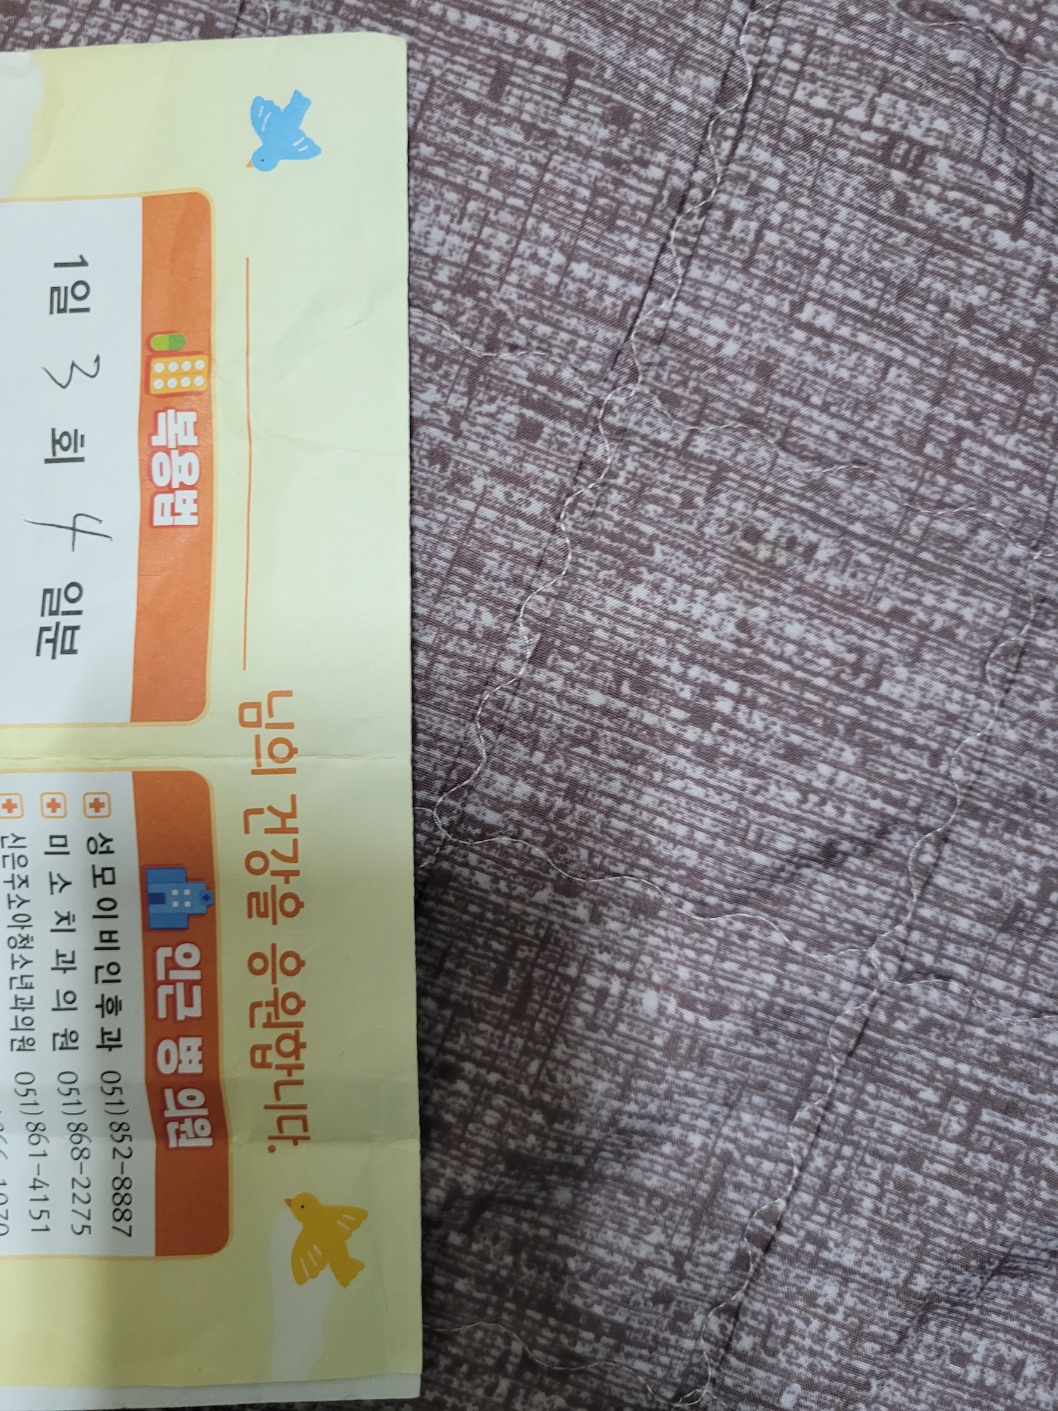 님의 건강을 응원합니다.
복용법
1일 3 회 4 일분
인근 병 의원
성모이비인후과 051)852-8887
미소치과의원 051)868-2275
신은주소아청소년과의원 051)861-4151